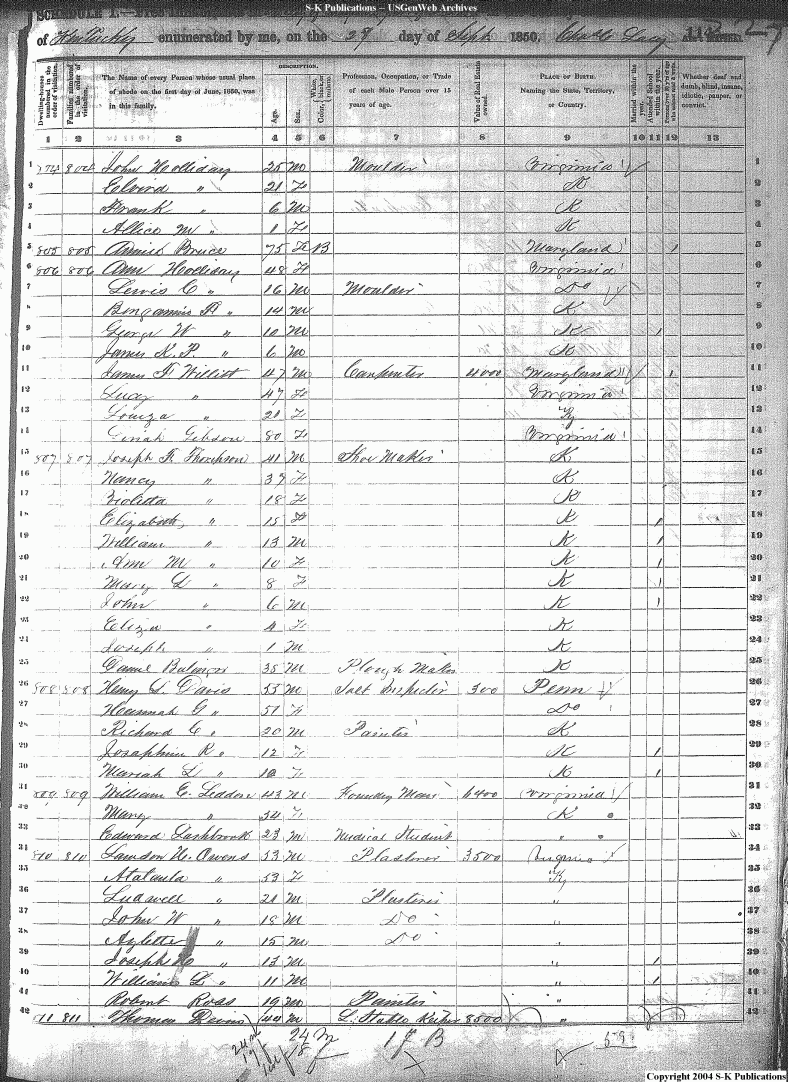 S-K Publications – USGenWeb Archives
SCHEDULE I.
of Kentucky enumerated by me, on the 29 day of Sept 1850.
DESCRIPTION.
Dwelling-houses numbered in the order of visitation. Families numbered in the order of visitation. The Name of every Person whose usual place of abode on the first day of June, 1850, was in this family. Age. Sex. Color Profession, Occupation, or Trade of each Male Person over 15 years of age. Value of Real Estate owned. PLACE OF BIRTH. Naming the State, Territory, or Country. Married within the year. Attended School within the year. Whether deaf and dumb, blind, insane, idiotic, pauper, or convict.
1 2 3 4 5 6 7 8 9 10 11 12 13
1 804 John Holliday 25 M Moulder Virginia 1
2 Elvird " 21 F K 2
3 Frank " 6 M K 3
4 Allice M " 1 F K 4
5 805 805 Bruce 75 F B Maryland 1 5
6 806 806 Ann Holliday 48 F Virginia 6
7 Lewis C " 16 M Moulder Do 7
8 Bengamin F " 14 M K 8
9 George W " 10 M K 1 9
10 James K. P. " 6 M K 10
11 James F Willitt 47 M Carpenter 4000 Maryland 1 11
12 Lucy " 47 F Virginia 12
13 Louiza " 21 F Ky 13
14 Gibson 80 F Virginia 14
15 807 807 Joseph F. Thompson 41 M Shoe Maker K 15
16 Nancy " 39 F K 16
17 Violetta " 18 F K 17
18 Elizabeth " 15 F K 1 18
19 William " 13 M K 1 19
20 Ann M " 10 F K 1 20
21 Mary L " 8 F K 1 21
22 John " 6 M K 1 22
23 Eliza " 4 F K 23
24 Joseph " 1 M K 24
25 Daniel 35 M Plough Maker K 25
26 808 808 Henry L. Davis 53 M Salt Inspector 300 Penn 26
27 Hannah G " 51 F Do 27
28 Richard C " 20 M Painter K 28
29 Josaphine R " 12 F K 1 29
30 Mariah L " F K 1 30
31 809 809 William E. 43 M Foundry Man Virginia 31
32 Mary " 34 F K 32
33 Edward Lashbrook 23 M Medical Student " 33
34 810 810 Owens 53 M Plasterer 3500 Virginia 34
35 Atalanta " 53 F Ky 35
36 Ludwell " 21 M Plasterer " 36
37 John W " 18 M Do " 37
38 Aylette " 15 M Do " 38
39 Joseph " 13 M " 1 39
40 William L " 11 M " 1 40
41 Robert Ross 19 M Painter " 41
42 811 811 Thomas 44 M L. Stable Keeper 8500 " 42
24 M 1 F B
18 F
Copyright 2004 S-K Publications